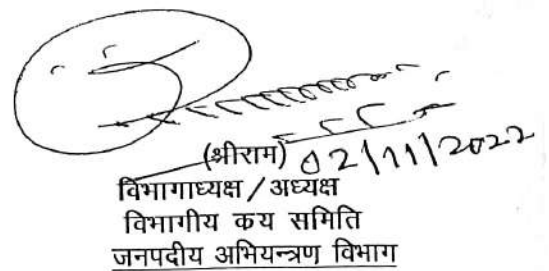 (श्रीराम) 02/11/2022
विभागाध्यक्ष / अध्यक्ष
विभागीय कय समिति
जनपदीय अभियन्त्रण विभाग